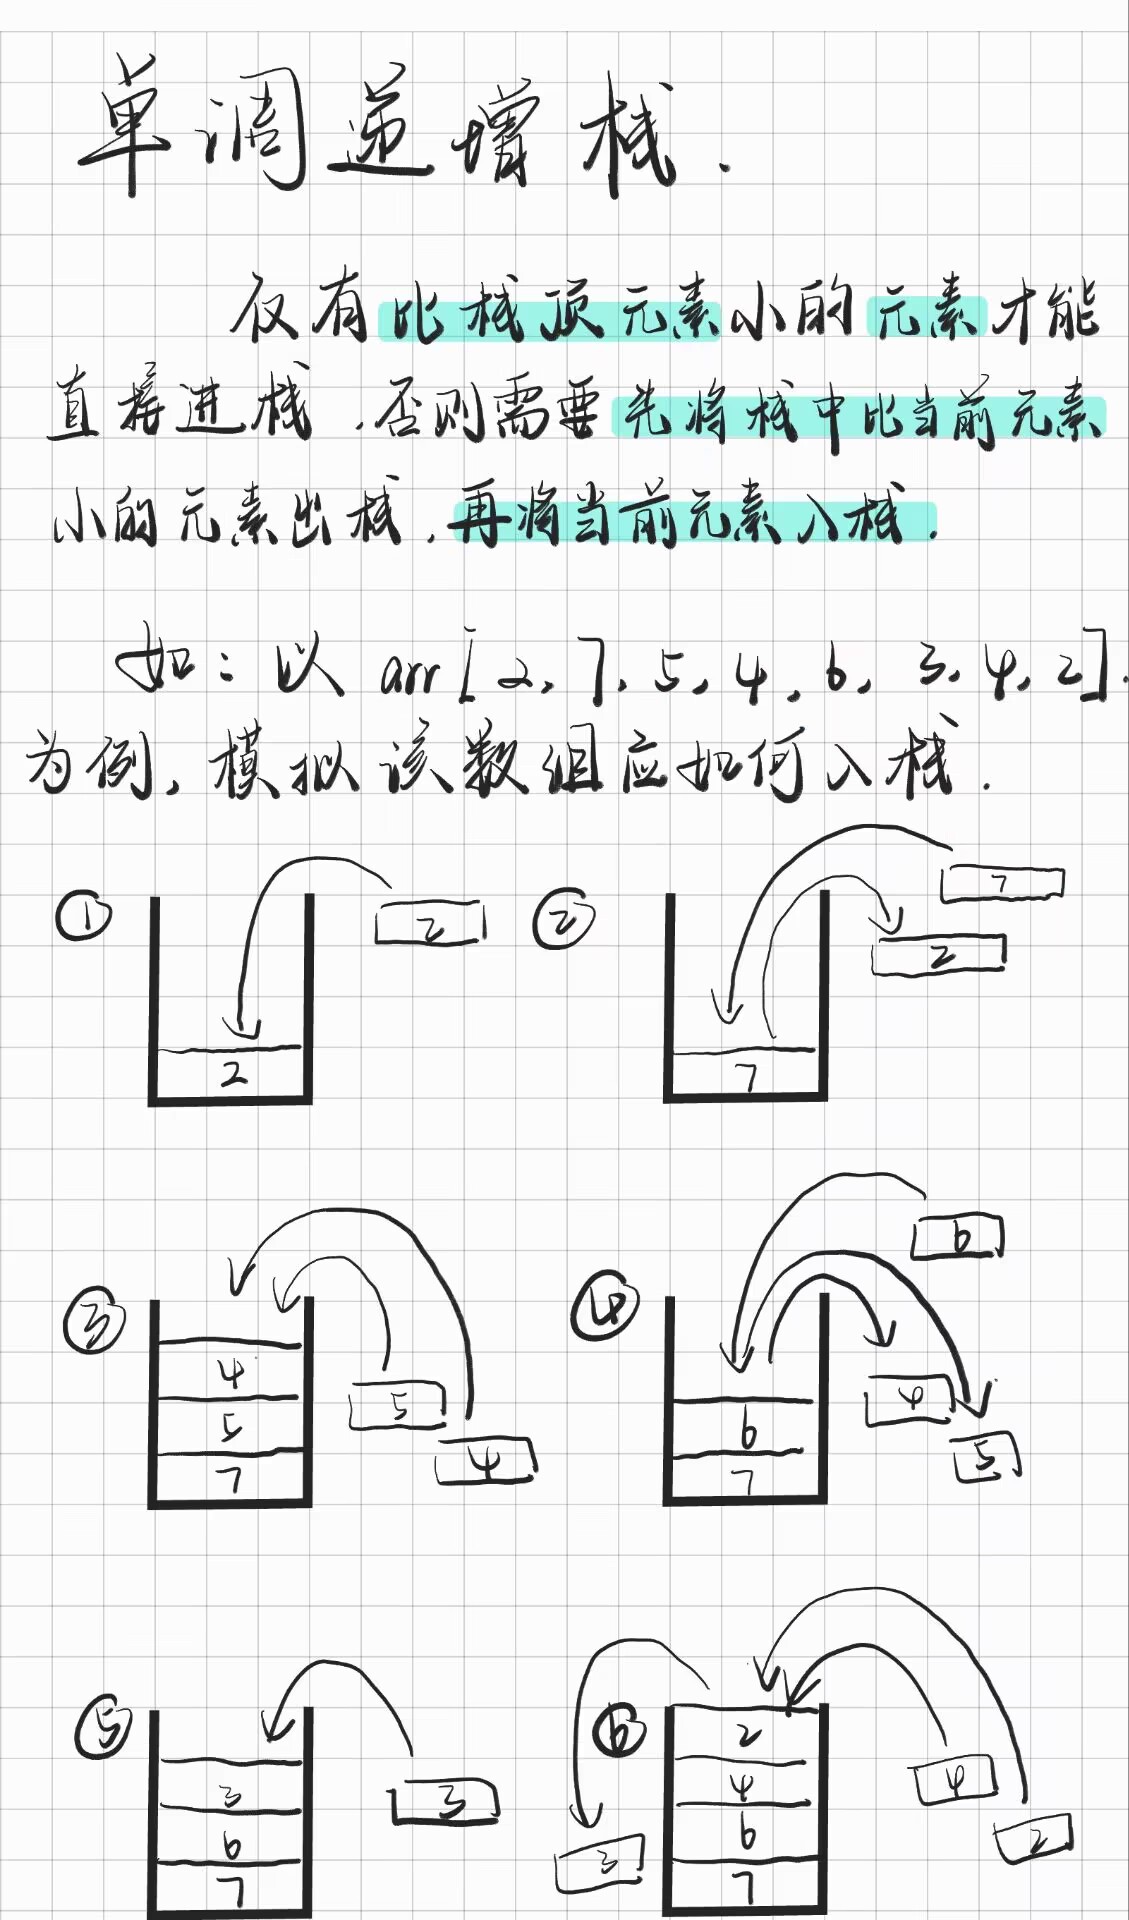 单调递增栈.
仅有比栈顶元素小的元素才能
直接进栈.否则需要先将栈中比当前元素
小的元素出栈.再将当前元素入栈.
如:以arr[2,7,5,4,6,3,4,2].
为例,模拟该数组应如何入栈.
① 2
2
② 7
2
7
③ 4
5
7
5
4
④ 6
6
7
4
5
⑤ 3
6
7
3
⑥ 2
4
6
7
3
4
2